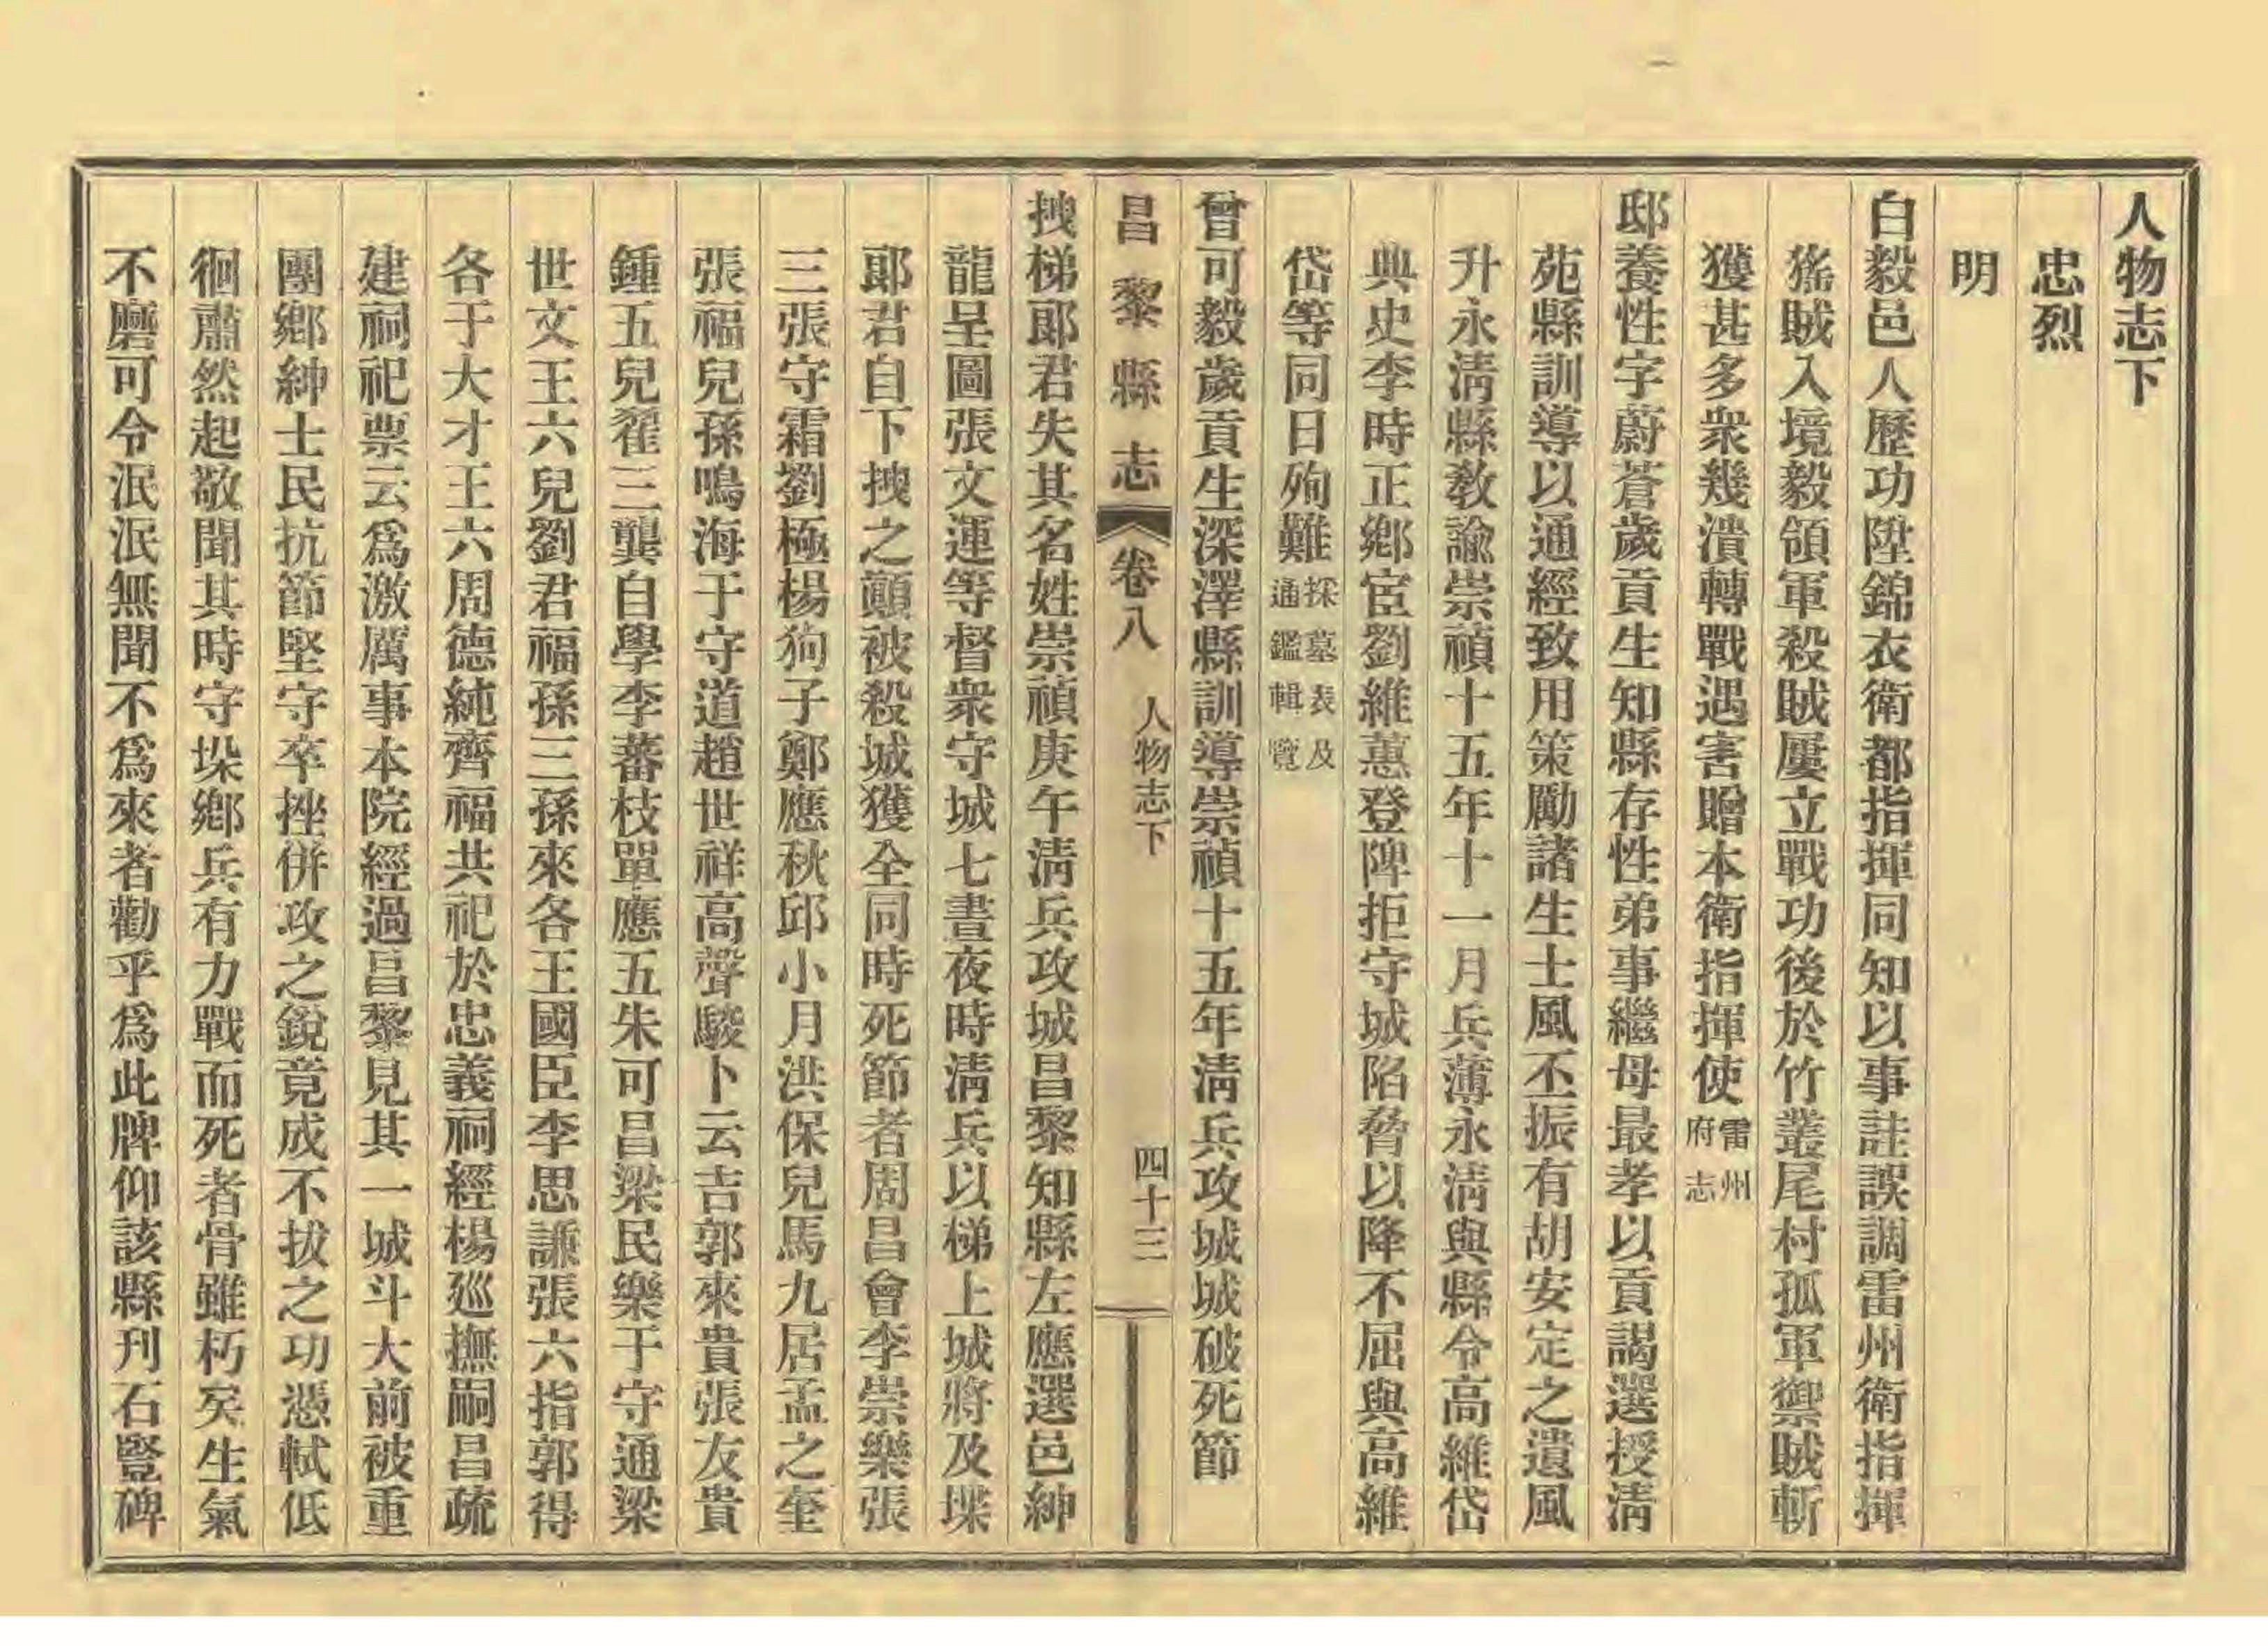 人物志下
忠烈
明
白毅邑人歷功陞錦衣衛都指揮同知以事註誤調雷州衛指揮
猺賊入境毅領軍殺賊屢立戰功後於竹叢尾村孤軍禦賊斬
獲甚多衆幾潰轉戰遇害贈本衛指揮使雷州府志
邸養性字蔚蒼歲貢生知縣存性弟事繼母最孝以貢謁選授淸
苑縣訓導以通經致用策勵諸生士風丕振有胡安定之遺風
升永淸縣敎諭崇禎十五年十一月兵薄永淸與縣令高維岱
典史李時正鄉宦劉維蕙登陴拒守城陷脅以降不屈與高維
岱等同日殉難採墓表及通鑑輯覽
曾可毅歲貢生深澤縣訓導崇禎十五年淸兵攻城城破死節
昌黎縣志 卷八 人物志下 四十三
拽梯郎君失其名姓崇禎庚午淸兵攻城昌黎知縣左應選邑紳
龍呈圖張文運等督衆守城七晝夜時淸兵以梯上城將及堞
郎君自下拽之顚被殺城獲全同時死節者周昌會李崇樂張
三張守霜劉極楊狗子鄭應秋邱小月洪保兒馬九居孟之奎
張福兒孫鳴海于守道趙世祥高聲駿卜云吉郭來貴張友貴
鍾五兒翟三龔自學李蕃枝單應五朱可昌梁民樂于守通梁
世文王六兒劉君福孫三孫來各王國臣李思謙張六指郭得
各于大才王六周德純齊福共祀於忠義祠經楊廵撫嗣昌疏
建祠祀票云爲激厲事本院經過昌黎見其一城斗大前被重
團鄉紳士民抗節堅守卒挫倂攻之銳竟成不拔之功憑軾低
徊肅然起敬聞其時守垛鄉兵有力戰而死者骨雖朽矣生氣
不磨可令泯泯無聞不爲來者勸乎爲此牌仰該縣刊石豎碑